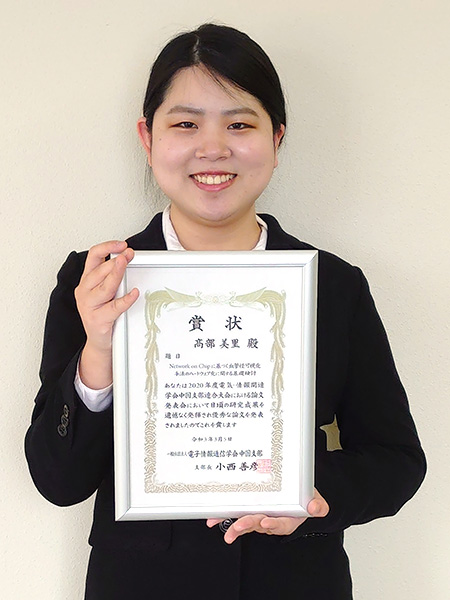 賞状
髙部 美里 殿
題目
Network on Chipに基づく血管径可視化
手法のハードウェア化に関する基礎検討
あなたは2020年度電気・情報関連
学会中国支部連合大会における論文
発表会において日頃の研究成果を
遺憾なく発揮され優秀な論文を発表
されましたのでこれを賞します
令和3年3月5日
一般社団法人 電子情報通信学会中国支部
支部長 小西善彦